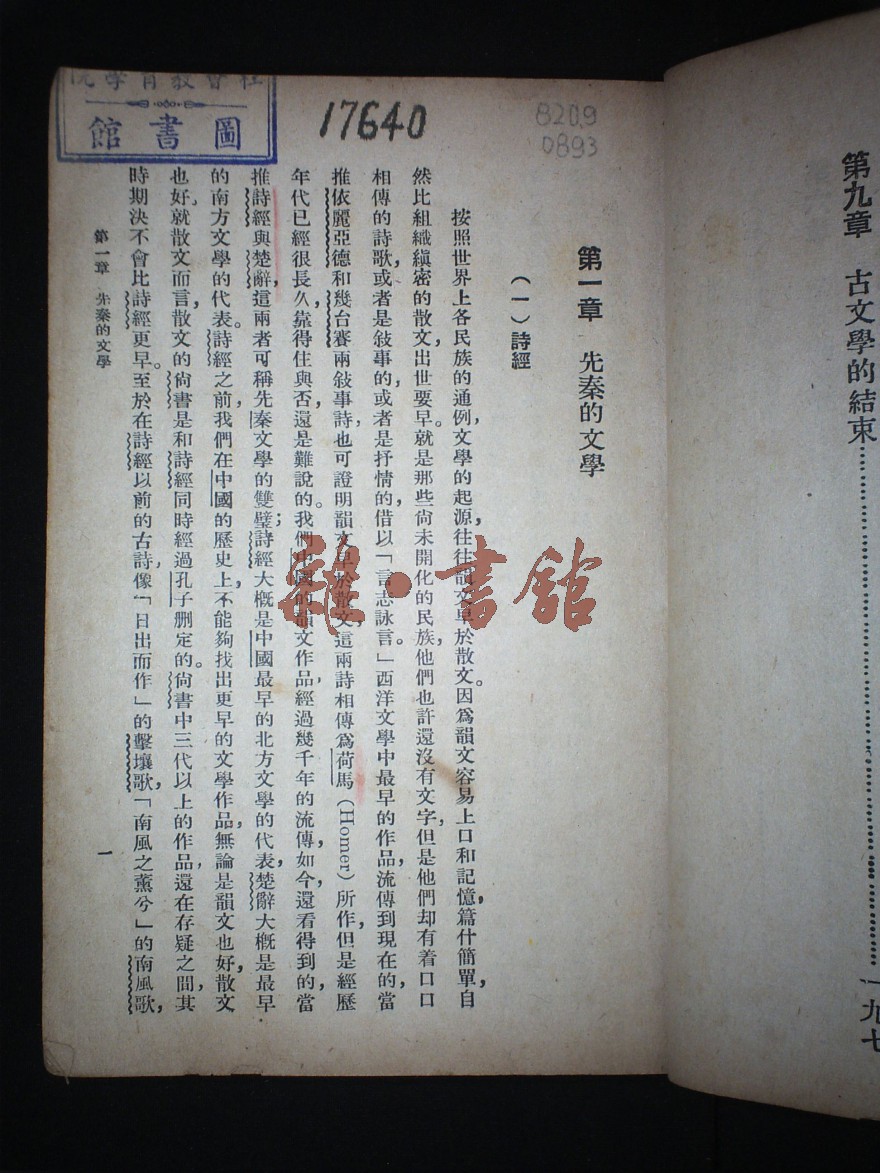 第九章　古文學的結束……………………………一九七
社會教育學院
圖書館
17640
820.9
0893
第一章　先秦的文學
（一）詩經
按照世界上各民族的通例，文學的起源，往往韻文早於散文。因爲韻文容易上口和記憶，篇什簡單，自
然比組織縝密的散文出世要早。就是那些尙未開化的民族，他們也許還沒有文字，但是他們却有着口口
相傳的詩歌，或者是敍事的，或者是抒情的，借以「言志詠言。」西洋文學中最早的作品，流傳到現在的，當
推依麗亞德和幾台賽兩敍事詩，也可證明韻文早於散文，這兩詩相傳爲荷馬（Homer）所作，但是經歷
年代已經很長久，靠得住與否，還是難說的。我們中國的韻文作品，經過幾千年的流傳，如今還看得到的，當
推詩經與楚辭，這兩者可稱先秦文學的雙璧；詩經大槪是中國最早的北方文學的代表，楚辭大槪是最早
的南方文學的代表。詩經之前，我們在中國的歷史上，不能夠找出更早的文學作品，無論是韻文也好，散文
也好。就散文而言，散文的尙書是和詩經同時經過孔子删定的。尙書中三代以上的作品，還在存疑之間，其
時期決不會比詩經更早。至於在詩經以前的古詩，像「日出而作」的擊壤歌，「南風之薰兮」的南風歌，
第一章　先秦的文學
一
雜·書館